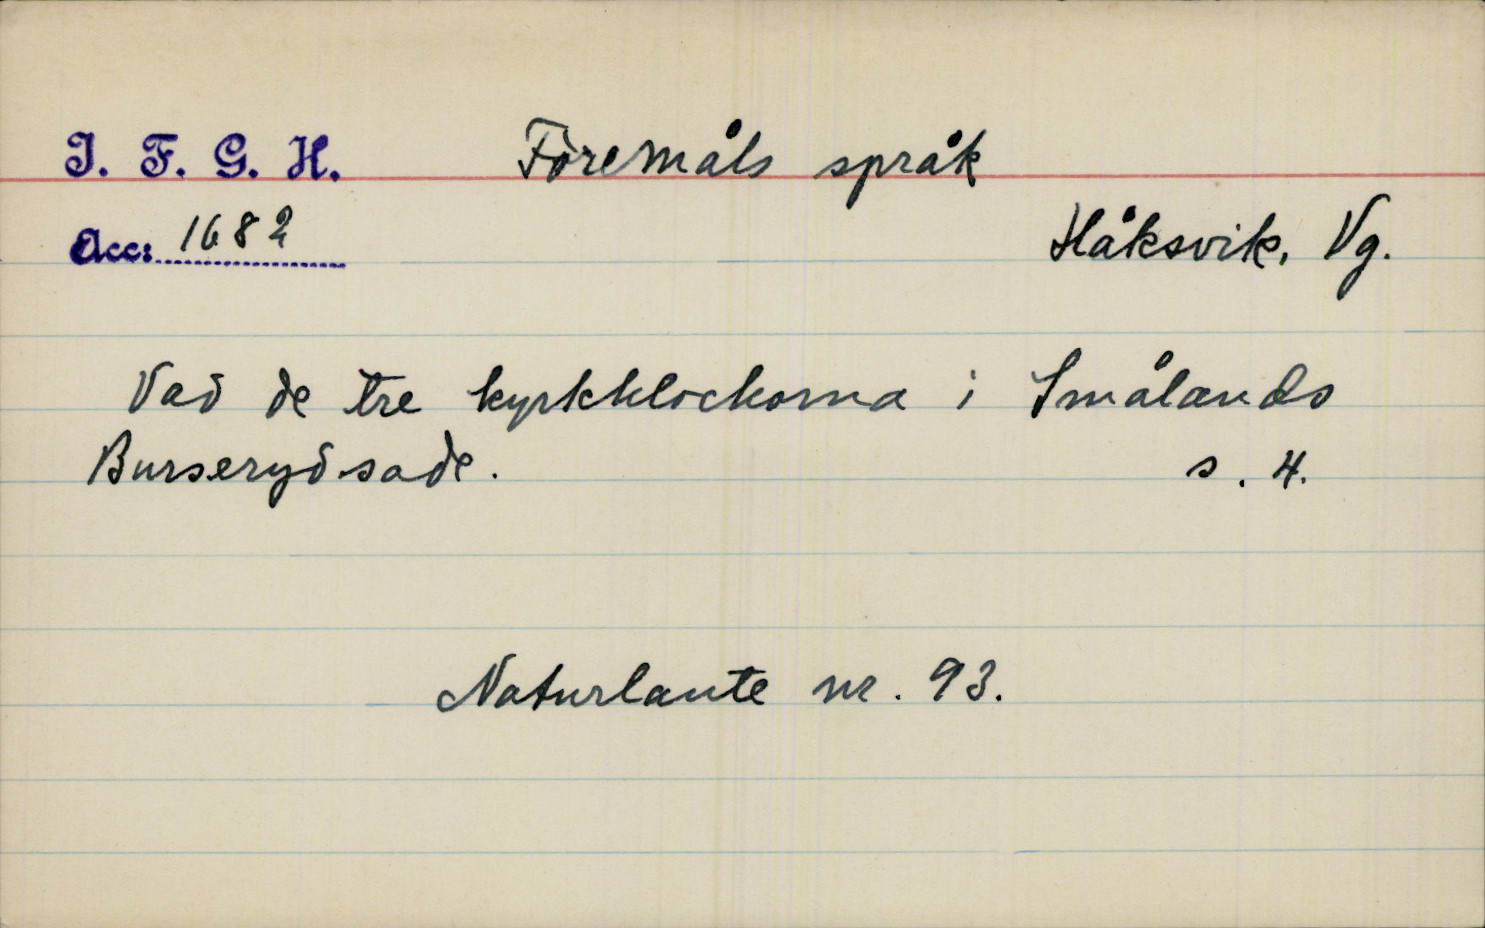 I. F. G. H. Föremåls språk
Acc: 1682 Håksvik, Vg.
Vad de tre kyrkklockorna i Smålands
Burseryd sade. s. 4.
Naturlaute nr. 93.